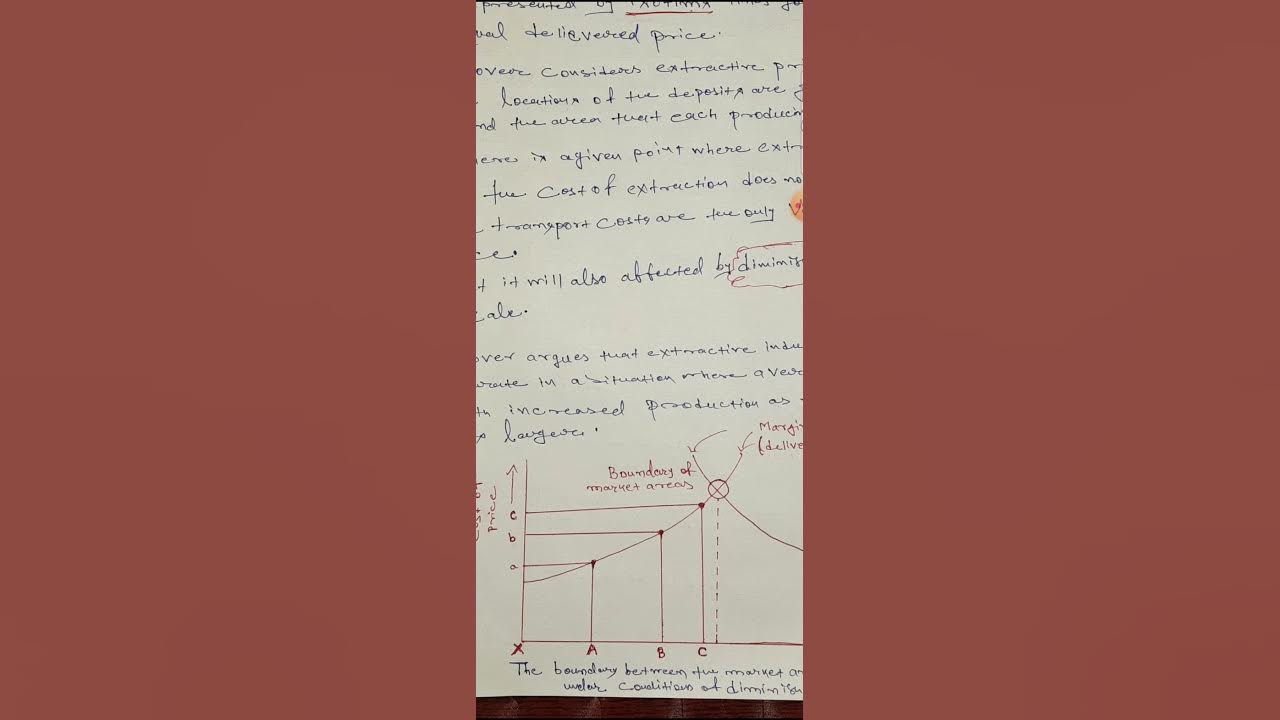 presented by isotims lines jo
ual delievered price.
over considers extractive pri
locations of the deposits are
nd the area that each producin
ere is a given point where extr
the cost of extraction does no
transport costs are the only v
ce.
it will also affected by diminis
cale.
over argues that extractive indu
rate in a situation where aver
th increased production as
s larger.
Margi
(delive
Boundary of
market areas
cost or
price
c
b
a
X A B C
The boundary between the market ar
under conditions of diminish